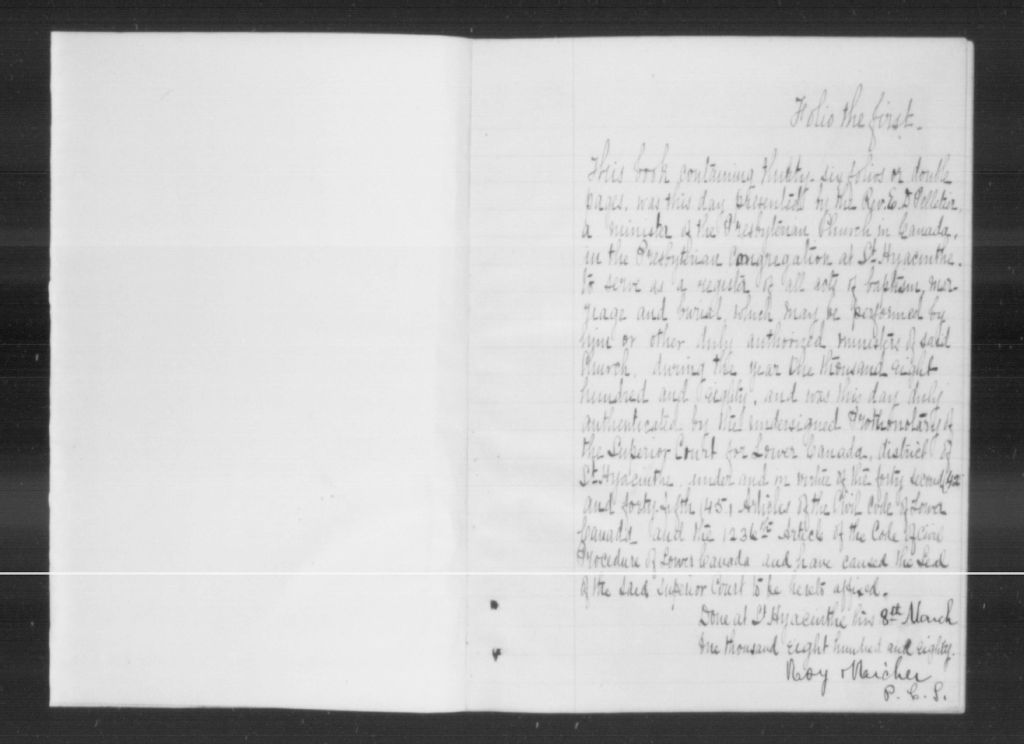 Folio the first.
This book containing thirty-six folios or double
pages, was this day presented by the Rev. E. D. Pelletier,
a minister of the Presbyterian Church in Canada,
in the Presbyterian Congregation at St. Hyacinthe.
to serve as a register of all acts of baptism, mar-
riage and burial, which may be performed by
him or other duly authorized ministers of said
Church, during the year One thousand eight
hundred and eighty, and was this day duly
authenticated by the undersigned Prothonotary of
the Superior Court for Lower Canada, district of
St. Hyacinthe, under and in virtue of the forty second (42
and forty fifth (45) Articles of the Civil Code of Lower
Canada and the 1236th Article of the Code of Civil
Procedure of Lower Canada and have caused the Seal
of the said Superior Court to be hereto affixed.
Done at St Hyacinthe this 8th March
One thousand eight hundred and eighty.
Roy &
P. C. S.